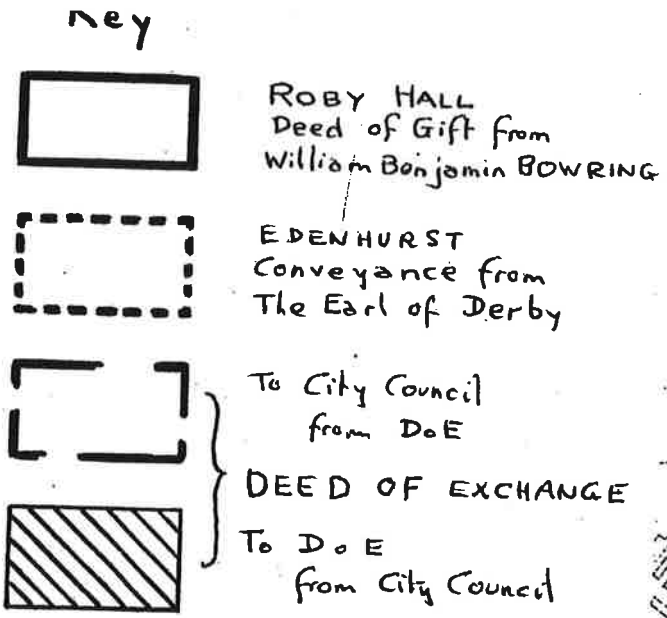 Key
ROBY HALL
Deed of Gift from
William Benjamin BOWRING
EDENHURST
Conveyance from
The Earl of Derby
To City Council
from DoE
DEED OF EXCHANGE
To DoE
from City Council